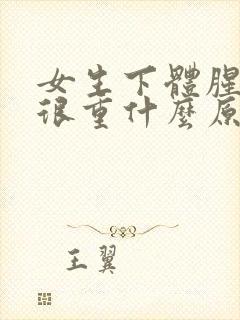 女生下體腥
很重什麼原
王翼